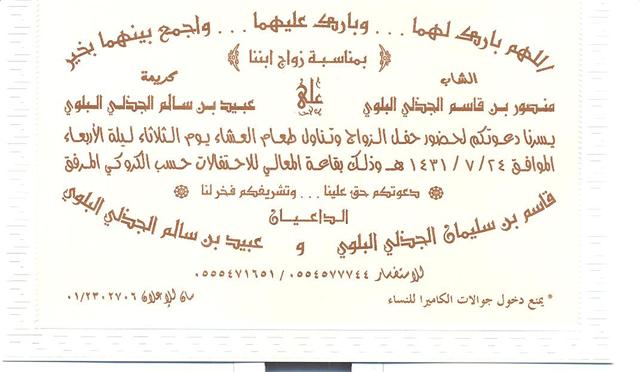 اللهم بارك لهما ... وبارك عليهما ... واجمع بينهما بخير
بمناسبة زواج ابننا
الشاب
كريمة
منصور بن قاسم الجذلي البلوي
على
عبيد بن سالم الجذلي البلوي
يسرنا دعوتكم لحضور حفل الزواج وتناول طعام العشاء يوم الثلاثاء ليلة الأربعاء
الموافق ١٤٣١/٧/٢٤ هـ وذلك بقاعة المعالي للاحتفلات حسب الكروكي المرفق
دعوتكم حق علينا ... وتشريفكم فخر لنا
الداعيان
قاسم بن سليمان الجذلي البلوي و عبيد بن سالم الجذلي البلوي
للاستفسار ٠٥٥٤٥٧٧٧٤٤ / ٠٥٥٥٤٧١٦٥١
* يمنع دخول جوالات الكاميرا للنساء
سان للإعلان ٠١/٢٣٠٢٧٠٦